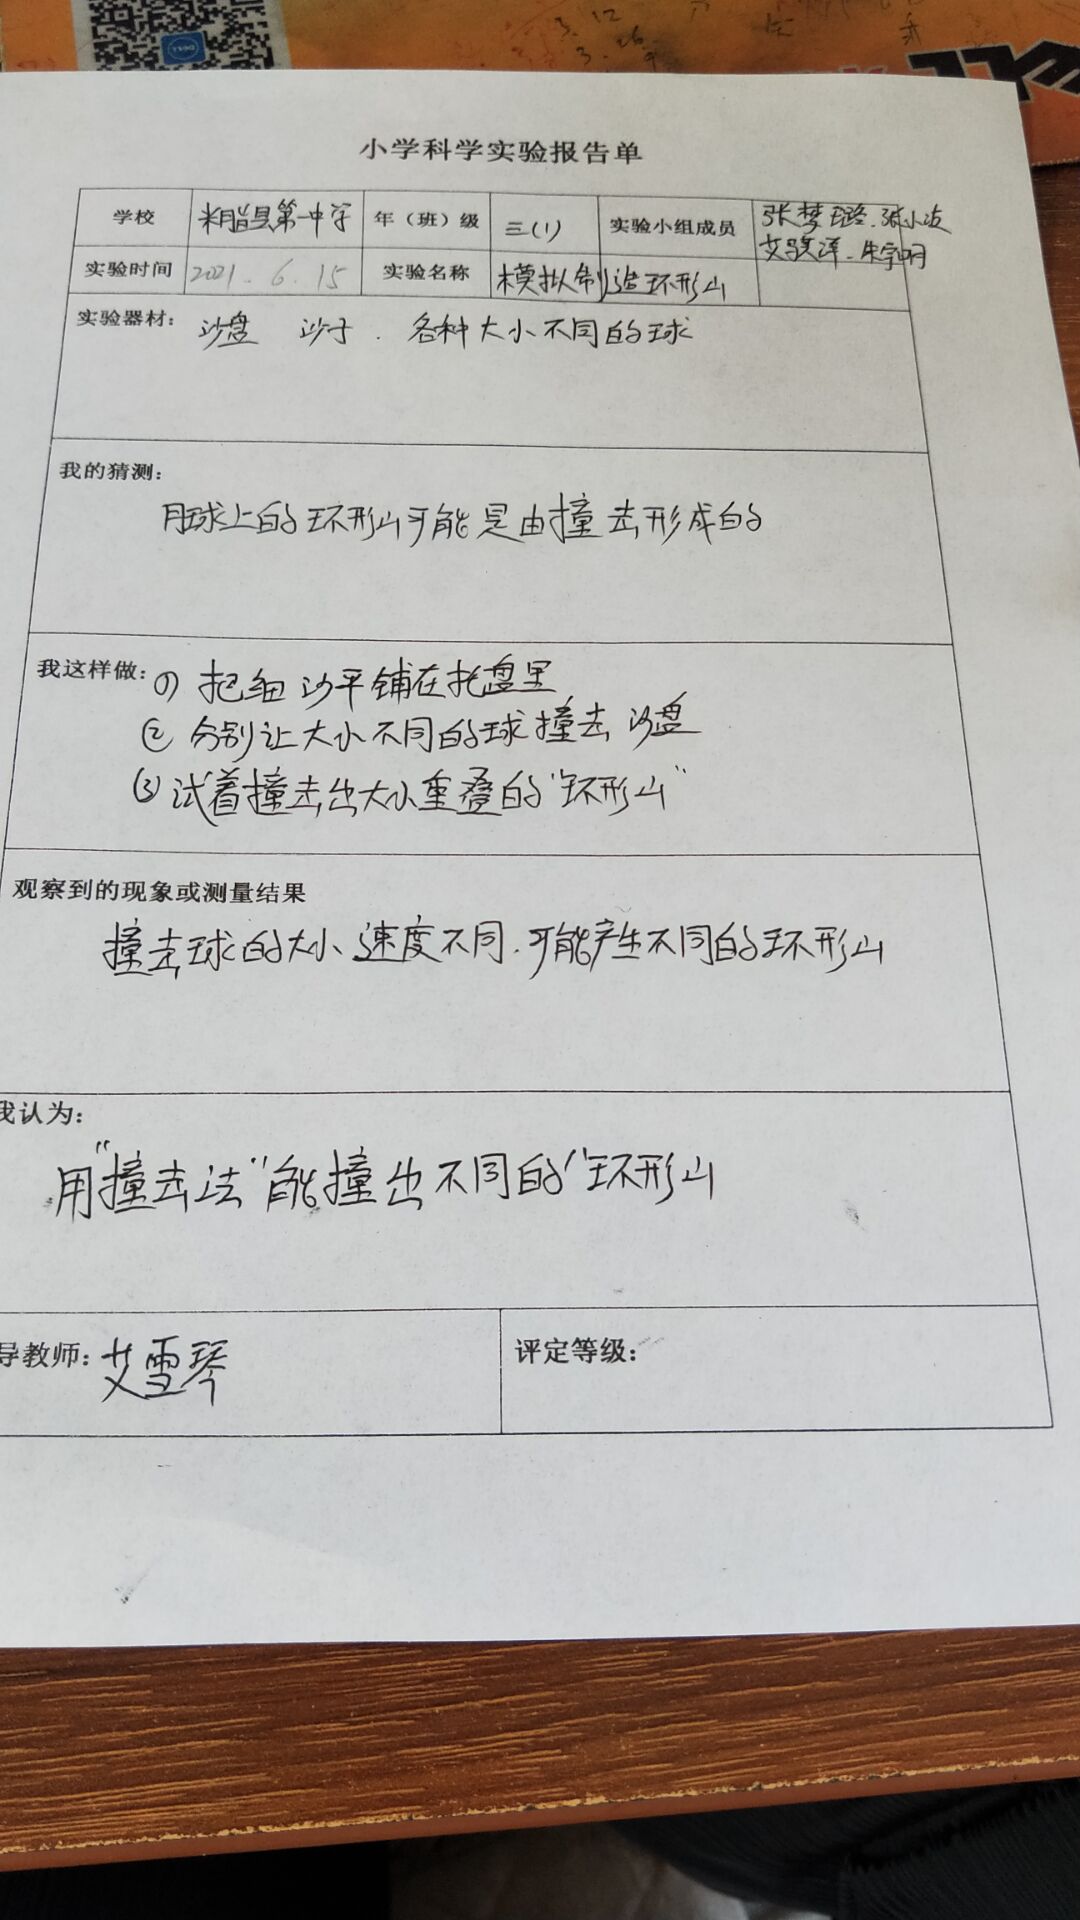 小学科学实验报告单
学校 米脂县第一中学 年（班）级 三（1） 实验小组成员 张梦璐.张小波
艾昊洋.朱宇明
实验时间 2021.6.15 实验名称 模拟制造环形山
实验器材： 沙盘 沙子. 各种大小不同的球
我的猜测：
月球上的环形山可能是由撞击形成的
我这样做：① 把细沙平铺在托盘里
② 分别让大小不同的球撞击沙盘
③ 试着撞击出大小重叠的"环形山"
观察到的现象或测量结果
撞击球的大小、速度不同.可能产生不同的环形山
我认为：
用"撞击法"能撞出不同的"环形山
导教师：艾雪琴
评定等级：